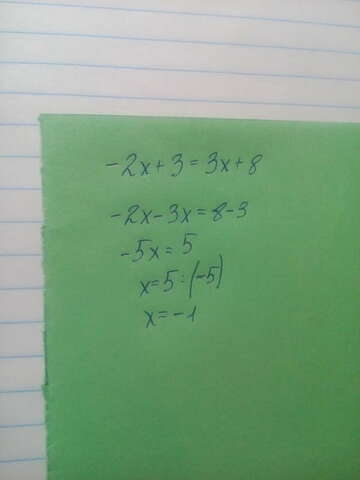 -2x+3=3x+8
-2x-3x=8-3
-5x=5
x=5:(-5)
x=-1